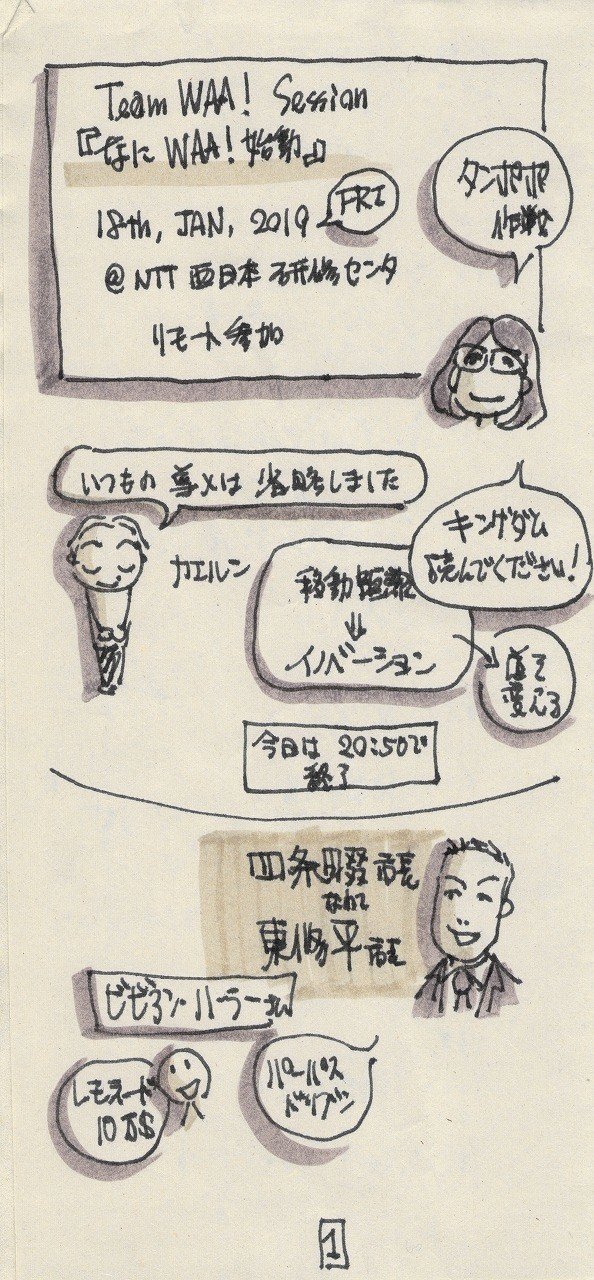 Team WAA! Session
『なに WAA! 始動』
18th, JAN, 2019
FRI
@ NTT 西日本 研修センタ
リモート参加
タンポポ
作戦
いつもの 〆は 省略しました
カエルン
移動距離
⇓
イノベーション
キングダム
読んでください!
変える
今日は 20:50で
終了
四条畷市長
東修平
ビビアン・ハーラーさん
レモネード
10万$
パーパス
ドリブン
1